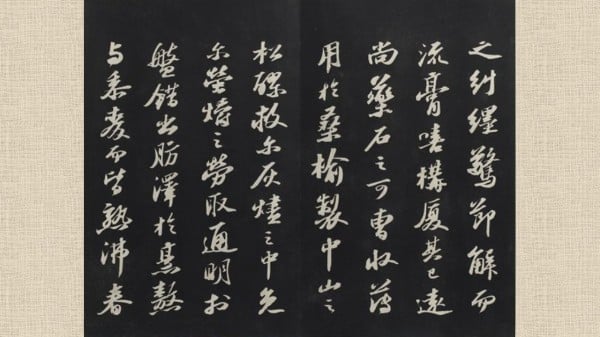 之糾纆驚節解而
流膏嗟構厦其已遠
尚藥石之可曹收薄
用於桑榆製中山之
松醪救尔灰燼之中免
尔螢爝之勞取通明於
盤錯出肪澤於烹熬
与黍麦而皆熟沸舂